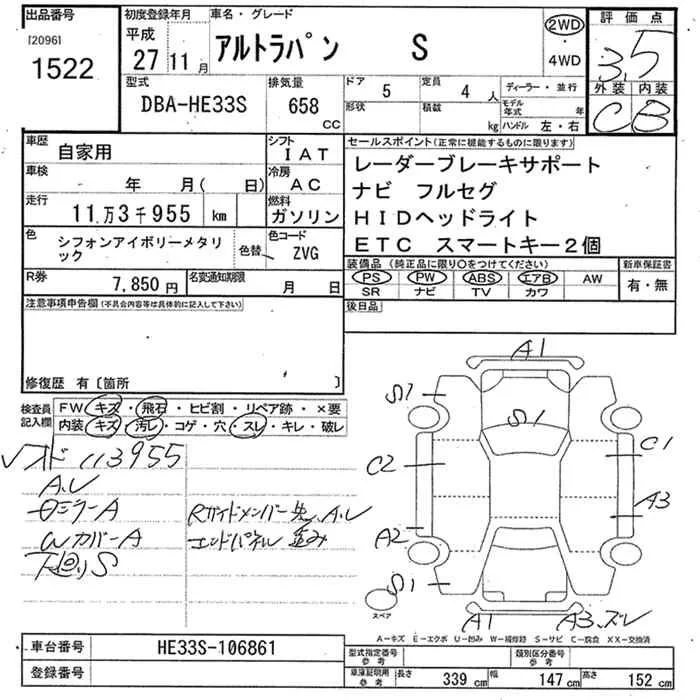 出品番号
[2096]
1522
初度登録年月
平成
27 11月
車名・グレード
アルトラパン S
2WD
・
4WD
評価点
3.5
外装 内装
C B
型式
DBA-HE33S
排気量
658
CC
ドア
5
定員
4 人
形状
積載
kg
ディーラー・並行
モデル年式 年
ハンドル 左・右
車歴
自家用
シフト
IAT
車検
年 月( 日)
冷房
AC
走行
11万3千955 km
燃料
ガソリン
色
シフォンアイボリーメタリック
色替
色コード
ZVG
R券
7,850円
名変通知期限
月 日
セールスポイント(正常に機能するものに限ります)
レーダーブレーキサポート
ナビ フルセグ
HIDヘッドライト
ETC スマートキー2個
装備品 (純正品に限り〇をつけてください)
PS PW ABS エアB AW
SR ナビ TV カワ
新車保証書
有・無
後日品
注意事項申告欄(不具合内容等は具体的に記入して下さい)
修復歴 有〔箇所 〕
検査員記入欄
FW キズ・飛石・ヒビ割・リペア跡・×要
内装 キズ・汚レ・コゲ・穴・スレ・キレ・破レ
メド 113955
A.U
ロミラーA
WカバーA
下廻りS
Rサイドメンバー先、A.U
エンドパネル 歪み
A1
S1
C2
A2
S1
S1
C1
A3
A1
A3.ズレ
スペア
A−キズ E−エクボ U−凹み W−補修跡 S−サビ C−腐食 XX−交換済
車台番号
HE33S-106861
登録番号
型式指定番号
参考
類別区分番号
参考
車庫証明用
参考
長さ
339 cm
幅
147 cm
高さ
152 cm